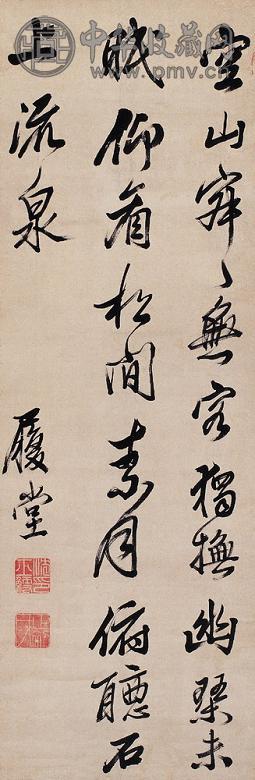 空山寂〻無客獨撫幽琴未
眠仰看松間素月俯聽石
上流泉
履堂
中国收藏网
www.pmv.cn